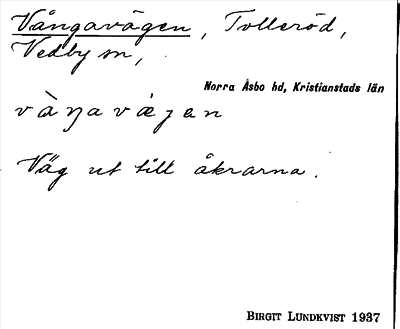 Vångavägen, Tolleröd,
Vedby sn,
Norra Åsbo hd, Kristianstads län
Väg ut till åkrarna.
BIRGIT LUNDKVIST 1937